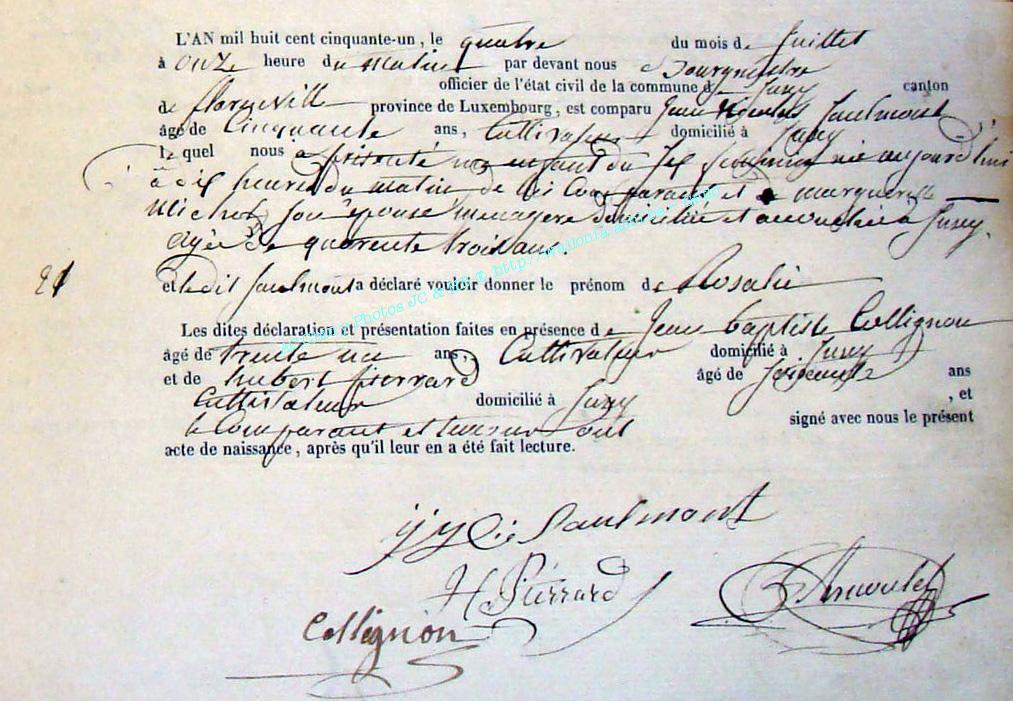 L'AN mil huit cent cinquante-un, le quatre du mois de Juillet
à onze heure du matin par devant nous Bourgmestre
officier de l'état civil de la commune de Juzy canton
de florenville province de Luxembourg, est comparu Jean Saulmont
âgé de Cinquante ans, Cultivateur domicilié à Juzy
le quel nous a présenté un enfant du féminin né aujourd'hui
à dix heures du matin de lui Comparant et marguerite
Michel son épouse ménagère domiciliée et à Juzy.
agée de quarente trois ans.
21 et le dit Saulmont a déclaré vouloir donner le prénom de Rosalie
Les dites déclaration et présentation faites en présence de Jean baptiste Collignon
âgé de trente un ans, Cultivateur domicilié à Juzy
et de hubert pierrard âgé de ans
Cultivateur domicilié à Juzy , et
le Comparant et ont signé avec nous le présent
acte de naissance, après qu'il leur en a été fait lecture.
Saulmont
H Pierrard
Collignon